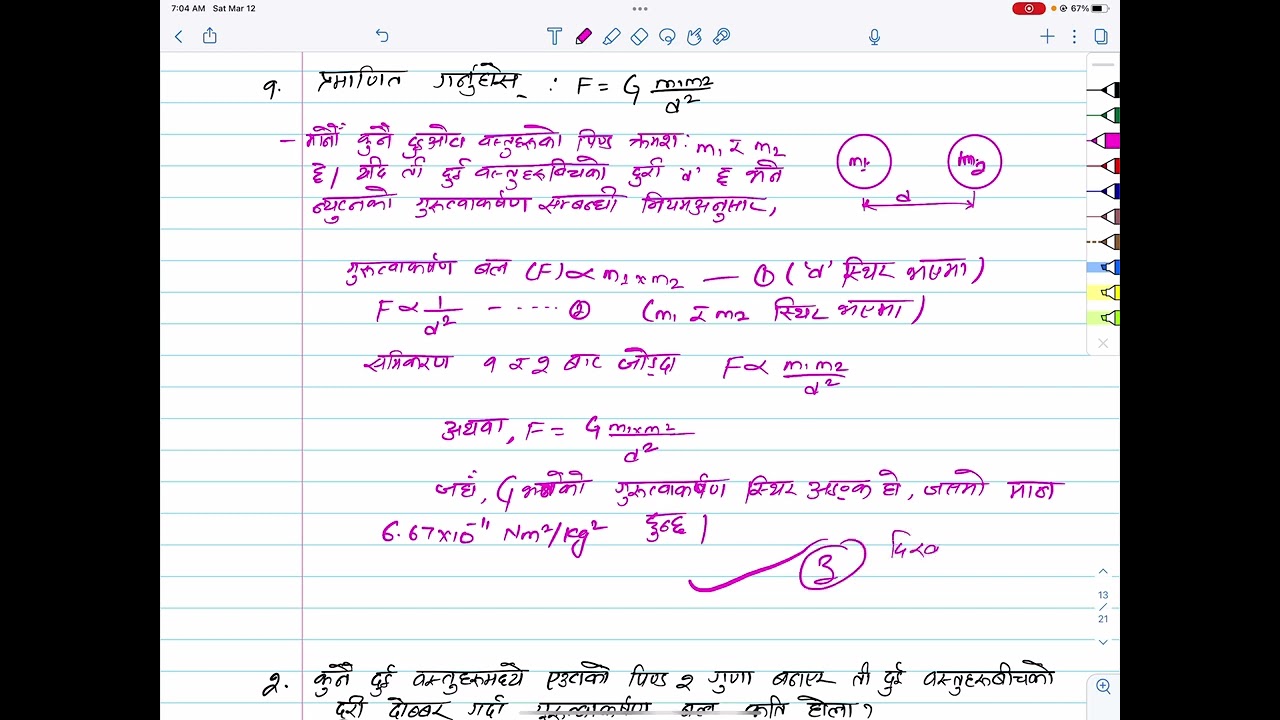 7:04 AM Sat Mar 12
67%
१. प्रमाणित गर्नुहोस् : F = G m₁m₂/d²
- मानौं कुनै दुइओटा वस्तुहरुको पिण्ड क्रमश: m₁ र m₂
m₁ m₂
छ। यदि ती दुई वस्तुहरुबिचको दुरी 'd' छ भने
न्युटनको गुरुत्वाकर्षण सम्बन्धी नियमअनुसार,
d
गुरुत्वाकर्षण बल (F) ∝ m₁ × m₂ — ① ('d' स्थिर भएमा)
F ∝ 1/d² - ---- ② (m₁ र m₂ स्थिर भएमा)
समिकरण १ र २ बाट जोड्दा F ∝ m₁m₂/d²
अथवा, F = G m₁×m₂/d²
जहाँ, G भनेको गुरुत्वाकर्षण स्थिर अङ्क हो, जसको मान
6.67×10⁻¹¹ Nm²/kg² हुन्छ।
३
13
/
21
२. कुनै दुई वस्तुहरुमध्ये एउटाको पिण्ड २ गुणा बनाएर ती दुई वस्तुहरुबीचको
दुरी दोब्बर गर्दा गुरुत्वाकर्षण बल कति होला?